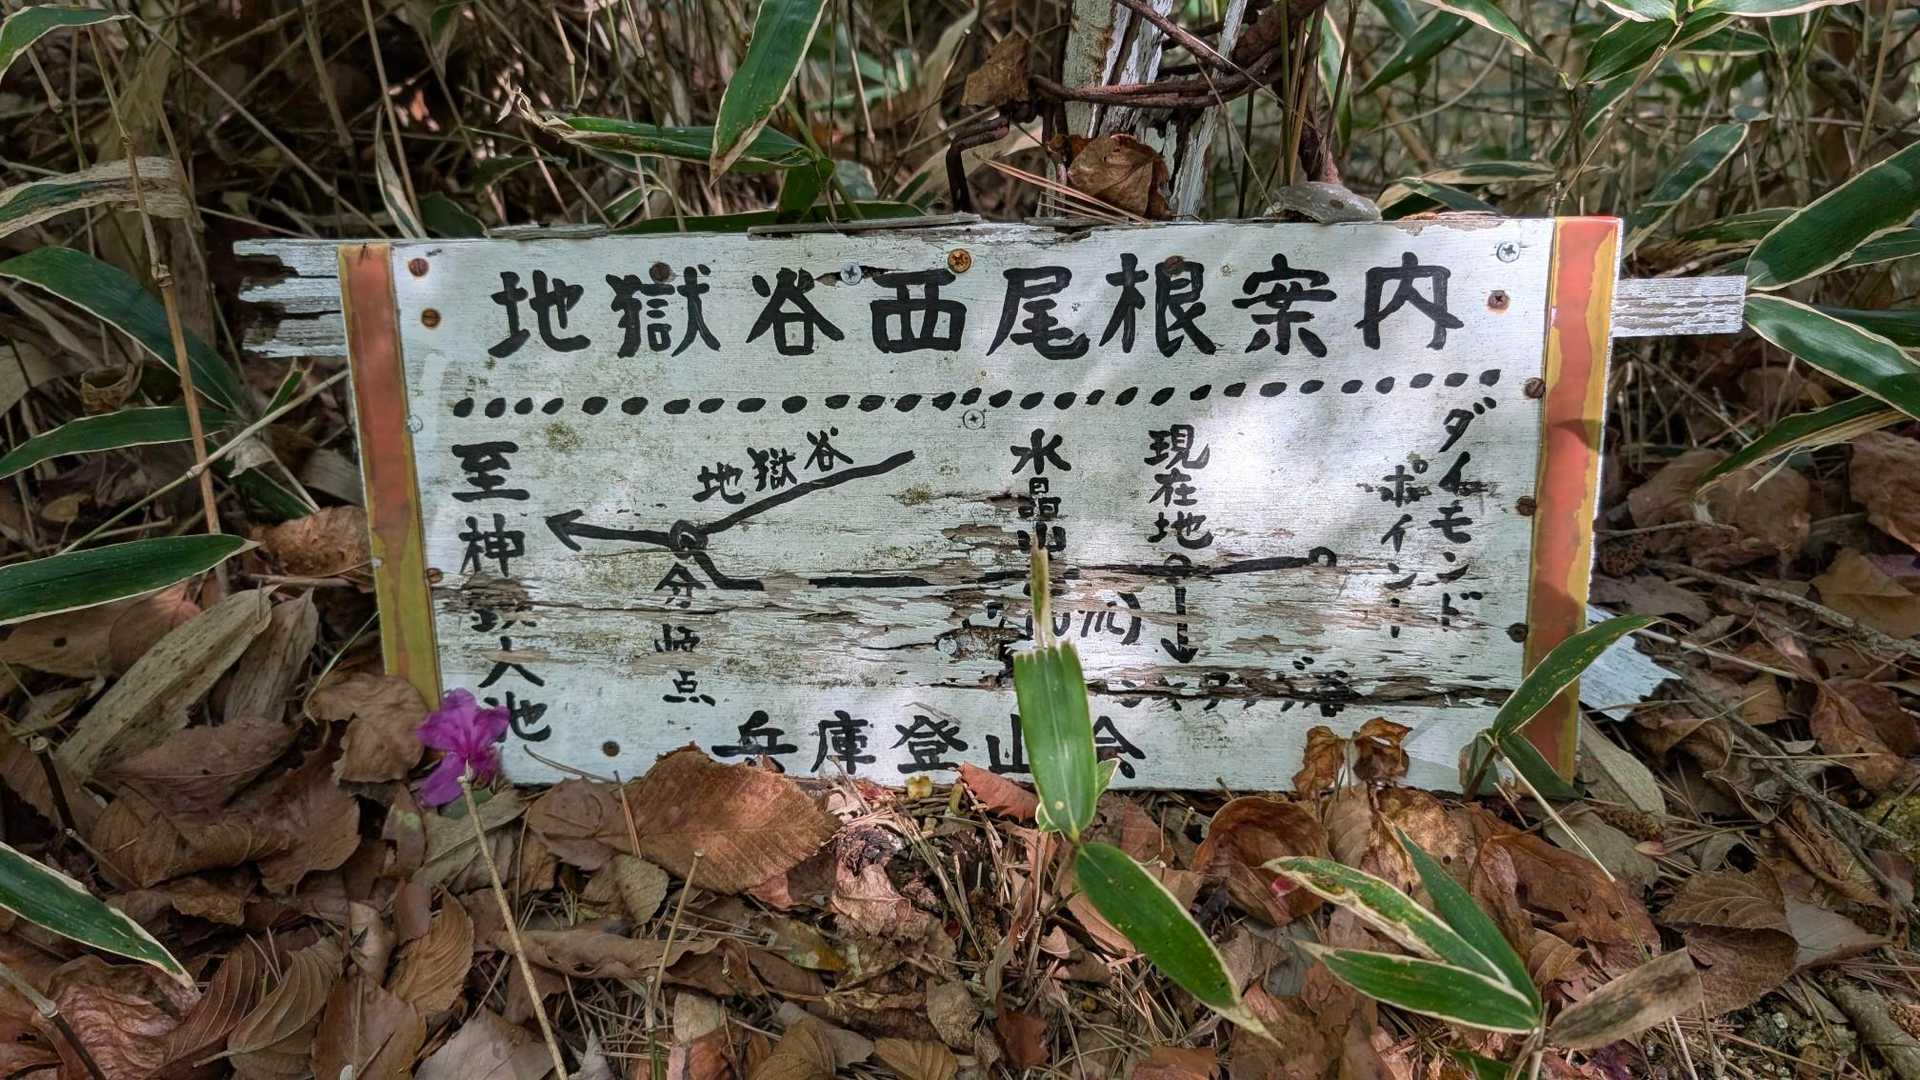 地獄谷西尾根案内
ダイヤモンド
ポイント
現在地
水晶山
地獄谷
分岐点
至神鉄大池
兵庫登山会